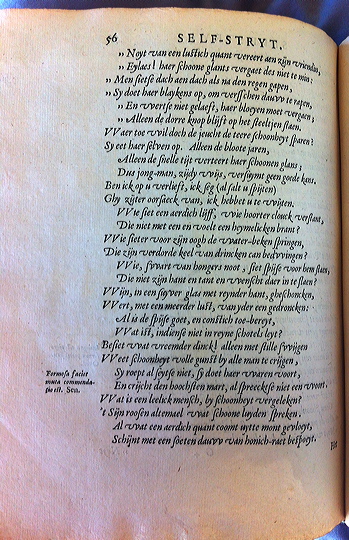 56 SELF-STRYT.
„ Noyt van een lustich quant vereert aen zijn vriendin,
„ Eylaes! haer schoone glants vergaet des niet te min:
„ Men sietse dach aen dach als na den regen gapen,
„ Sy doet haer blaykens op, om verschen dauvv te rapen,
„ En vvertse niet gelaeft, haer bloeyen moet vergaen,
„ Alleen de dorre knop blijft op het steeltjen staen.
VVaer toe vvil doch de jeucht de teere schoonheyt sparen?
Sy eet haer selven op. Alleen de bloote jaren,
Alleen de snelle tijt verteert haer schoonen glans;
Dus jong-man, zijdy vvijs, versuymt geen goede kans.
Ben ick op u verlieft, ick seg (al salt u spijten)
Ghy zijter oorsaeck van, ick hebbet u te vvijten.
VVie siet een aerdich lijff, vvie hoorter clouck verstant,
Die niet met een en voelt een heymelicken brant?
VVie sieter voor zijn oogh de vvater-beken springen,
Die zijn verdorde keel van drincken can bedvvingen?
VVie, svvart van hongers noot, siet spijse voor hem staen,
Die niet zijn hant en tant en vvenscht daer in te slaen?
VVijn, in een suyver glas met reynder hant, gheschoncken,
VVert, met een meerder lust, van yder een gedroncken:
Al is de spijse goet, en constich toe-bereyt,
VVat ist, indense niet in reyne schotels leyt?
Besiet vvat vreemder dinck! alleen met stille svvijgen
VVeet schoonheyt volle gunst by alle man te crijgen,
Sy roept al seytse niet, sy doet haer vvaren voort,
En crijcht den hoochsten mart, al spreecktse niet een vvoort.
Formosa facies
muta commenda-
tio est. Sen.
VVat is een leelick mensch, by schoonheyt vergeleken?
't Sijn roosen altemael vvat schoone luyden spreken.
Al vvat een aerdich quant coomt uytte mont gevloeyt,
Schijnt met een soeten dauvv van honich-raet bespoeyt.